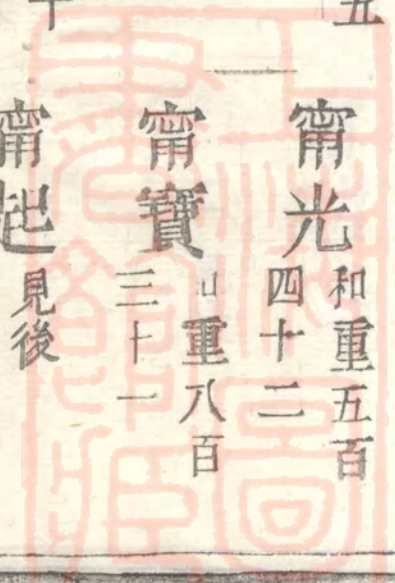 甯光
和重五百
四十二
甯寶
重八百
三十一
甯起
見後